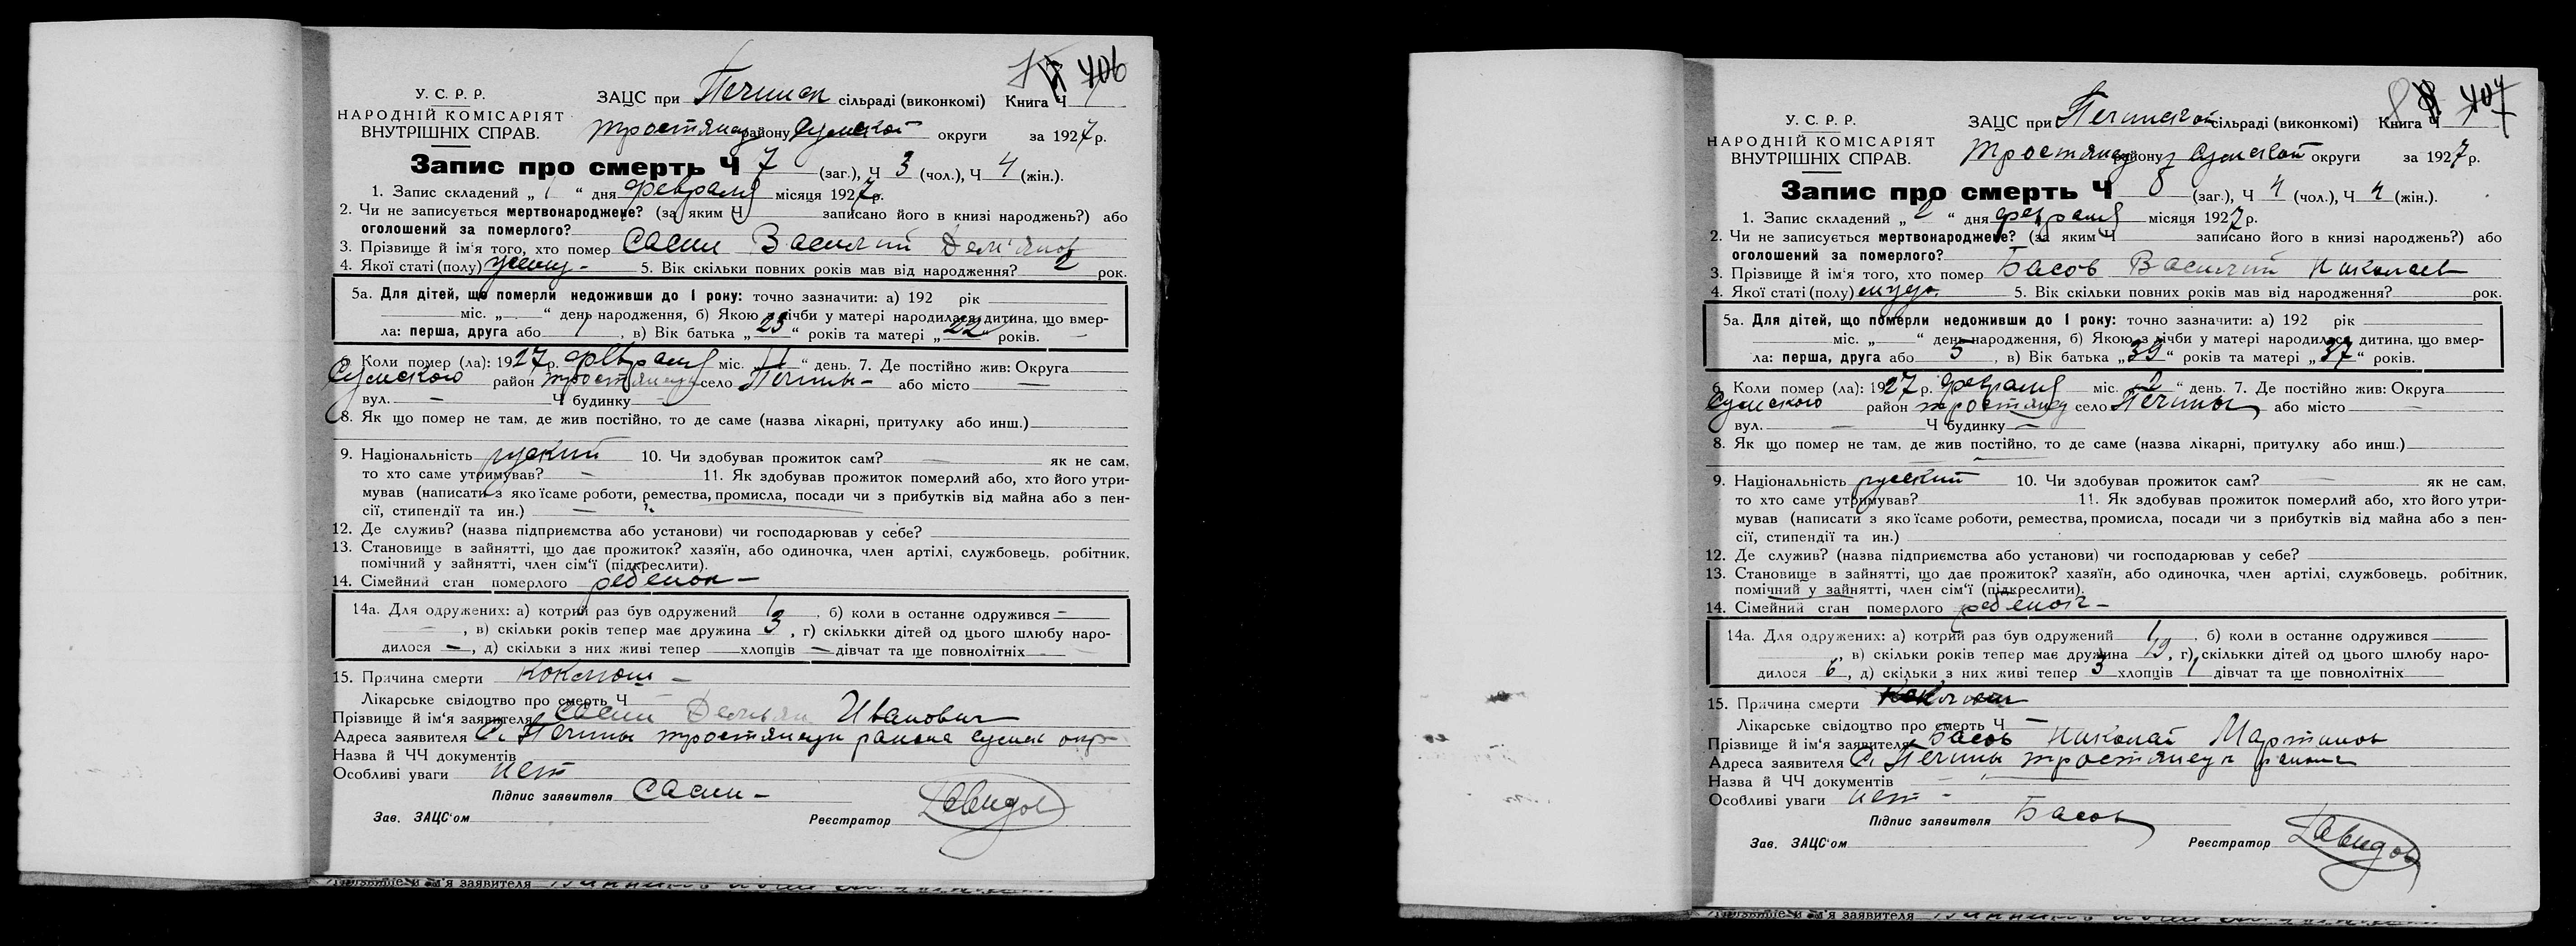 706
У. С. Р. Р.
НАРОДНІЙ КОМІСАРІЯТ
ВНУТРІШНІХ СПРАВ.
ЗАЦС при Печинск сільраді (виконкомі) Книга Ч
Тростянец району Сумской округи за 1927 р.
Запис про смерть Ч 7 (заг.), Ч 3 (чол.), Ч 4 (жін.).
1. Запис складений „ 1 “ дня февраля місяця 1927 р.
2. Чи не записується мертвонароджене? (за яким Ч записано його в книзі народжень?) або
оголошений за померлого?
3. Прізвище й ім'я того, хто помер Сасин Василий Демьянов
4. Якої статі (полу) 5. Вік скільки повних років мав від народження? 2 рок.
5а. Для дітей, що померли недоживши до 1 року: точно зазначити: а) 192 рік
міс. „ “ день народження, б) Якою з лічби у матері народилася дитина, що вмер-
ла: перша, друга або 1, в) Вік батька „23“ років та матері „22“ років.
6. Коли помер (ла): 1927 р. февраля міс. „1“ день. 7. Де постійно жив: Округа
Сумского район Тростянец село Печины – або місто –
вул. – Ч будинку –
8. Як що помер не там, де жив постійно, то де саме (назва лікарні, притулку або инш.)
9. Національність руский 10. Чи здобував прожиток сам? – як не сам,
то хто саме утримував? – 11. Як здобував прожиток померлий або, хто його утри-
мував (написати з яко їсаме роботи, ремества, промисла, посади чи з прибутків від майна або з пен-
сії, стипендії та ин.) –
12. Де служив? (назва підприємства або установи) чи господарював у себе?
13. Становище в зайнятті, що дає прожиток? хазяїн, або одиночка, член артілі, службовець, робітник,
помічний у зайнятті, член сім'ї (підкреслити).
14. Сімейний стан померлого ребенок –
14а. Для одружених: а) котрий раз був одружений 1, б) коли в останнє одружився –
–, в) скільки років тепер має дружина 3, г) скількки дітей од цього шлюбу наро-
дилося –, д) скільки з них живі тепер хлопців – дівчат та ще повнолітніх –
15. Причина смерти Коклюш –
Лікарське свідоцтво про смерть Ч
Прізвище й ім'я заявителя Сасин Демьян Иванович
Адреса заявителя С. Печины Тростянецк района Сумск окр
Назва й ЧЧ документів
Особливі уваги нет
Підпис заявителя Сасин –
Зав. ЗАЦС'ом Реєстратор Давидов
Прізвище й ім'я заявителя
707
У. С. Р. Р.
НАРОДНІЙ КОМІСАРІЯТ
ВНУТРІШНІХ СПРАВ.
ЗАЦС при Печинской сільраді (виконкомі) Книга Ч
Тростянец району Сумской округи за 1927 р.
Запис про смерть Ч 8 (заг.), Ч 4 (чол.), Ч 4 (жін.).
1. Запис складений „ 2 “ дня февраля місяця 1927 р.
2. Чи не записується мертвонароджене? (за яким Ч записано його в книзі народжень?) або
оголошений за померлого?
3. Прізвище й ім'я того, хто помер Басов Василий Николаев
4. Якої статі (полу) 5. Вік скільки повних років мав від народження? рок.
5а. Для дітей, що померли недоживши до 1 року: точно зазначити: а) 192 рік
міс. „ “ день народження, б) Якою з лічби у матері народилася дитина, що вмер-
ла: перша, друга або 5, в) Вік батька „39“ років та матері „37“ років.
6. Коли помер (ла): 1927 р. февраля міс. „2“ день. 7. Де постійно жив: Округа
Сумского район Тростянец село Печины або місто –
вул. – Ч будинку –
8. Як що помер не там, де жив постійно, то де саме (назва лікарні, притулку або инш.)
9. Національність русский 10. Чи здобував прожиток сам? – як не сам,
то хто саме утримував? 11. Як здобував прожиток померлий або, хто його утри-
мував (написати з яко їсаме роботи, ремества, промисла, посади чи з прибутків від майна або з пен-
сії, стипендії та ин.)
12. Де служив? (назва підприємства або установи) чи господарював у себе?
13. Становище в зайнятті, що дає прожиток? хазяїн, або одиночка, член артілі, службовець, робітник,
помічний у зайнятті, член сім'ї (підкреслити).
14. Сімейний стан померлого ребенок –
14а. Для одружених: а) котрий раз був одружений 1, б) коли в останнє одружився
, в) скільки років тепер має дружина 19, г) скількки дітей од цього шлюбу наро-
дилося 6, д) скільки з них живі тепер 3 хлопців 1 дівчат та ще повнолітніх
15. Причина смерти Коклюш
Лікарське свідоцтво про смерть Ч –
Прізвище й ім'я заявителя Басов Николай Мартинов
Адреса заявителя С. Печины Тростянецк района
Назва й ЧЧ документів –
Особливі уваги нет –
Підпис заявителя Басов
Зав. ЗАЦС'ом Реєстратор Давидов
Прізвище й ім'я заявителя